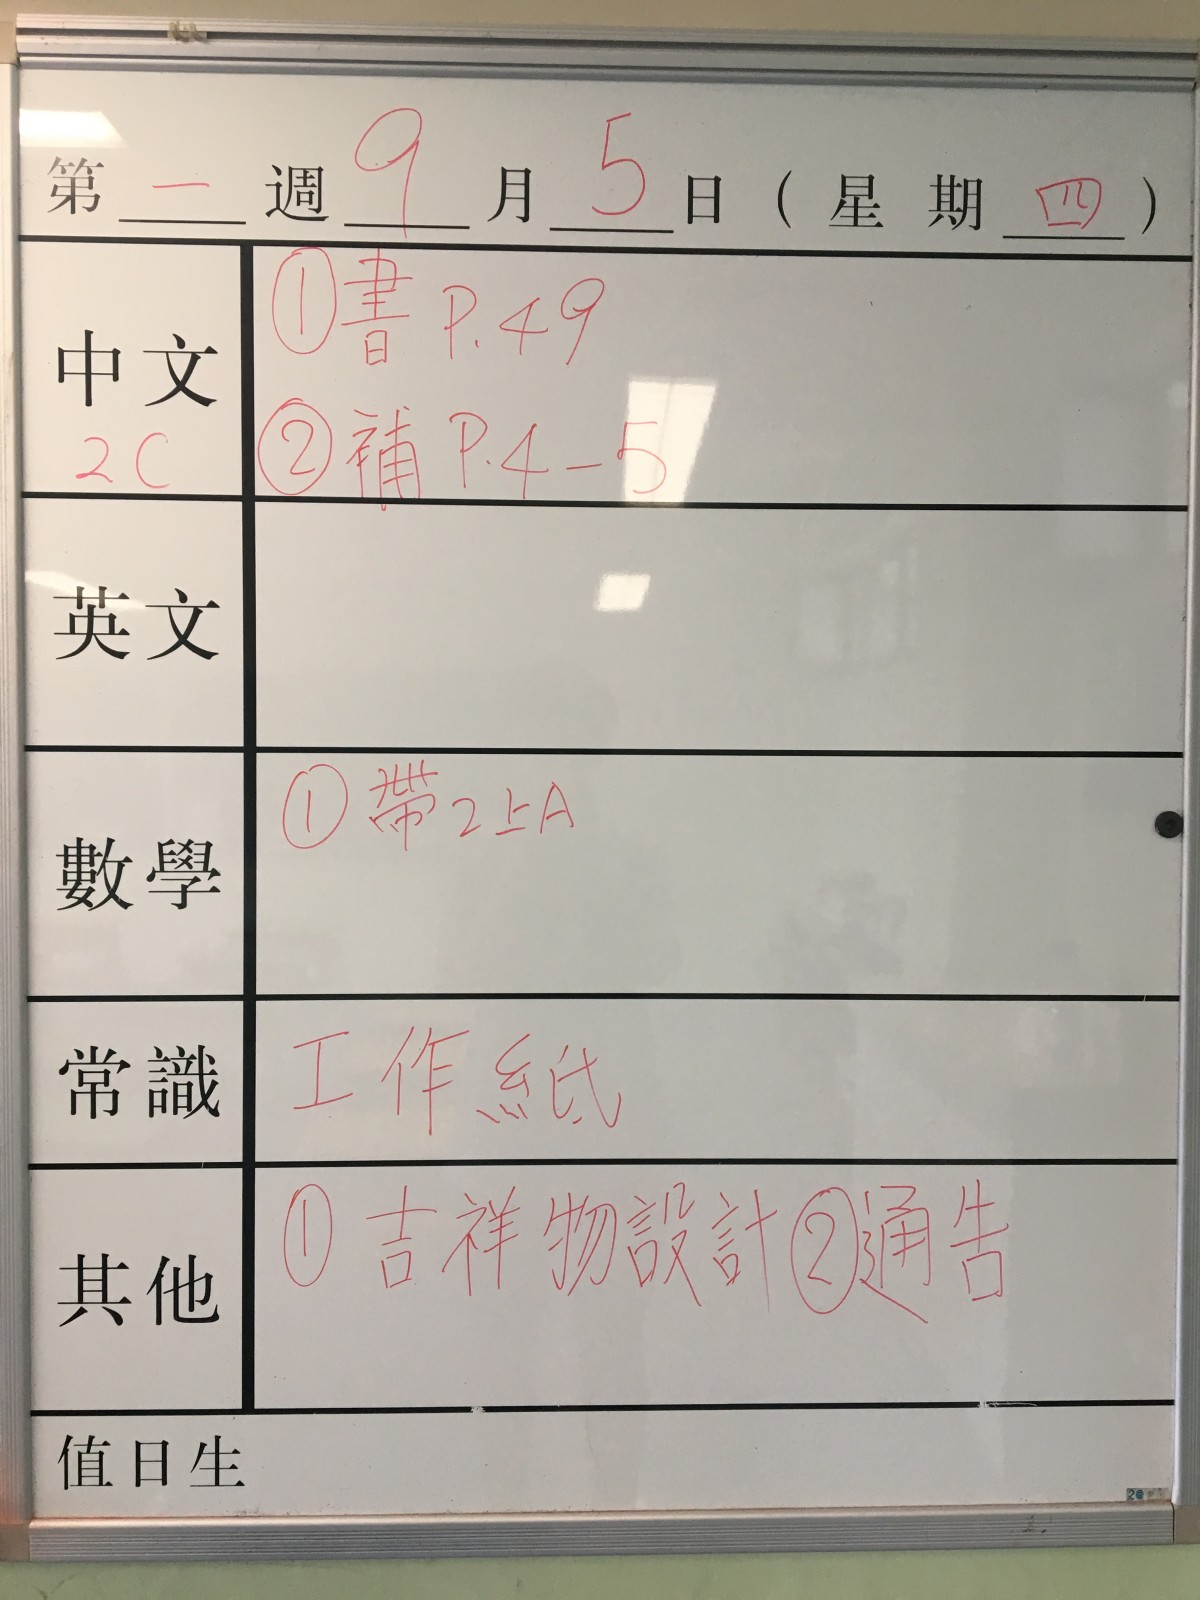 第一週9月5日(星期四)
中文
2C
①書 P.49
②補 P.4-5
英文
數學
①帶2上A
常識
工作紙
其他
①吉祥物設計②通告
值日生